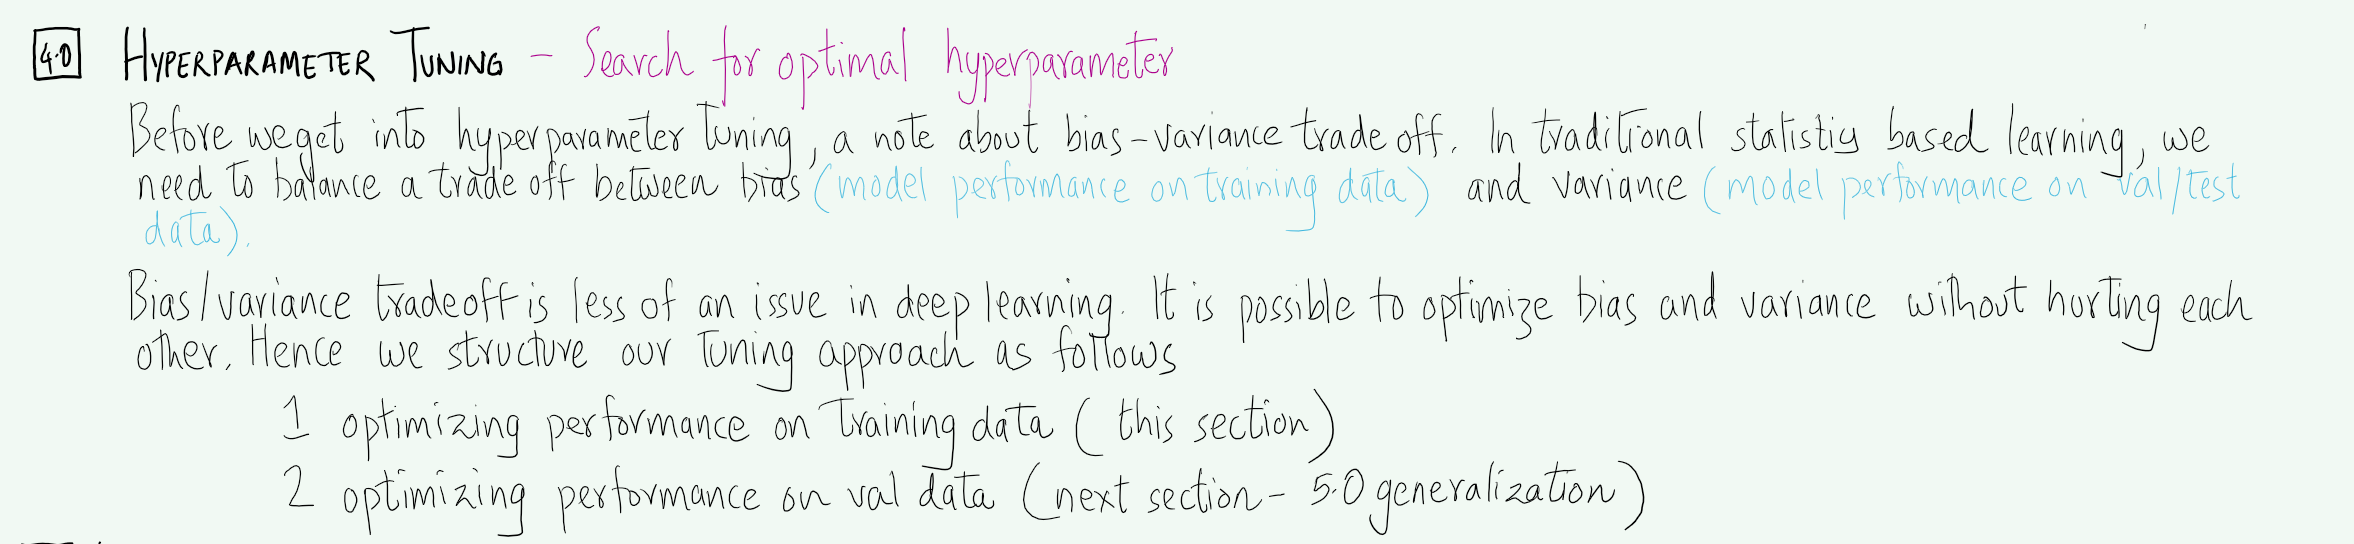 4.0 HYPERPARAMETER TUNING - Search for optimal hyperparameter
Before we get into hyperparameter Tuning, a note about bias-variance trade off. In traditional statistiy based learning, we
need to balance a trade off between bias (model performance on training data) and variance (model performance on val/test
data).
Bias/variance tradeoff is less of an issue in deep learning. It is possible to optimize bias and variance without hurting each
other. Hence we structure our Tuning approach as follows
1 optimizing performance on Training data (this section)
2 optimizing performance on val data (next section - 5.0 generalization)